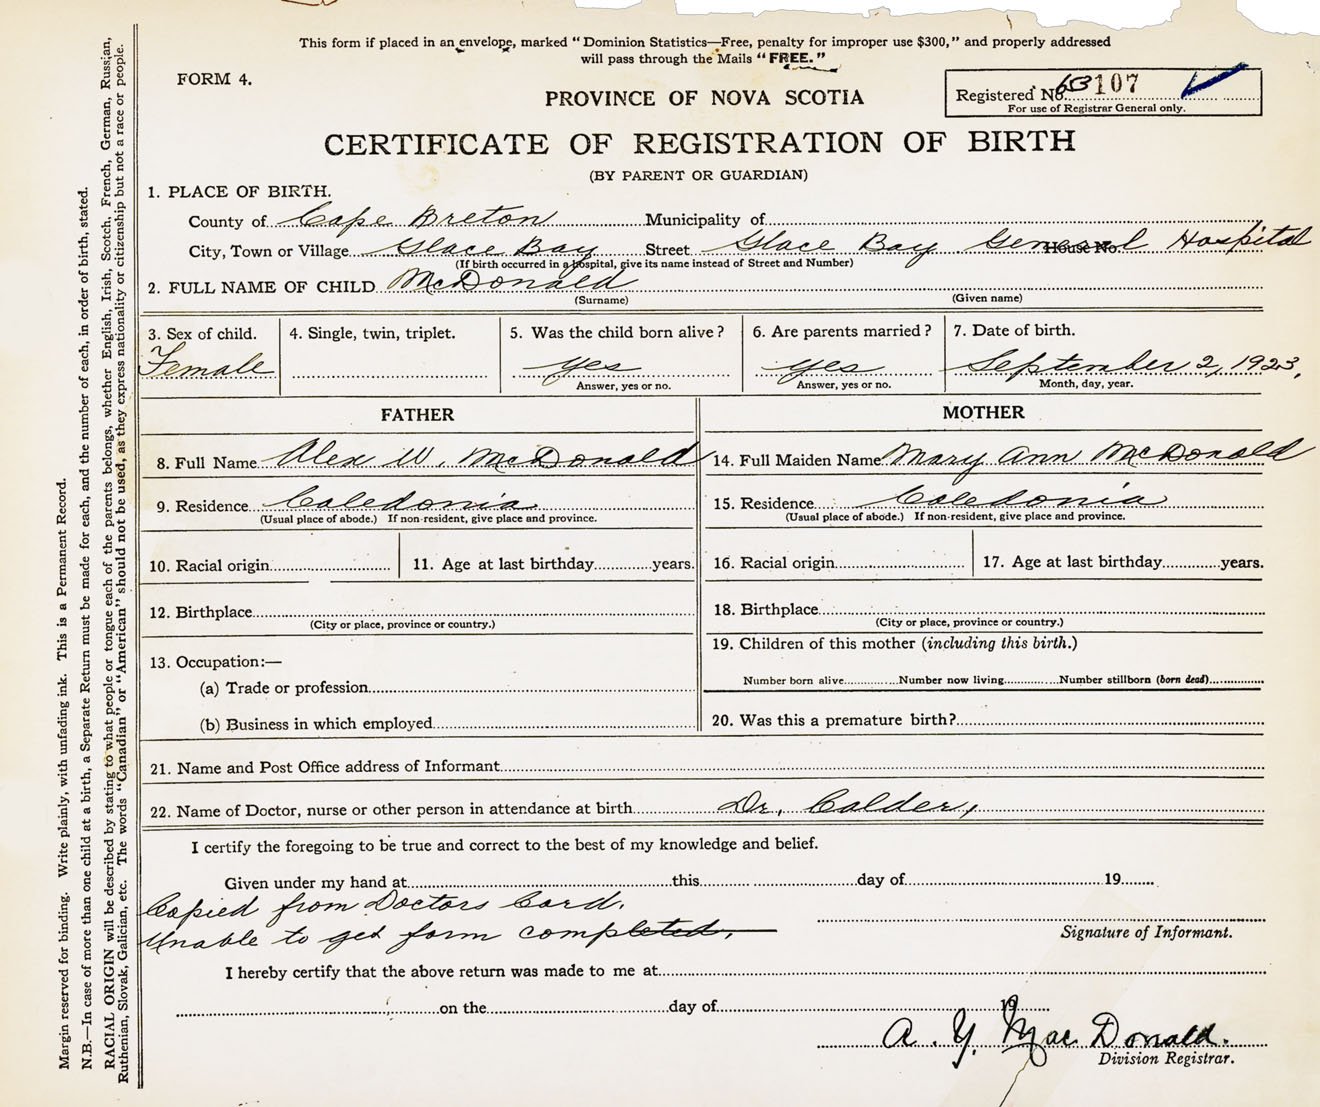 This form if placed in an envelope, marked “Dominion Statistics—Free, penalty for improper use $300,” and properly addressed
will pass through the Mails “FREE.”
FORM 4.
PROVINCE OF NOVA SCOTIA
Registered No. 107
For use of Registrar General only.
CERTIFICATE OF REGISTRATION OF BIRTH
(BY PARENT OR GUARDIAN)
1. PLACE OF BIRTH.
County of Cape Breton Municipality of
City, Town or Village Glace Bay Street Glace Bay General Hospital House No.
(If birth occurred in a hospital, give its name instead of Street and Number)
2. FULL NAME OF CHILD McDonald
(Surname) (Given name)
3. Sex of child. 4. Single, twin, triplet. 5. Was the child born alive? 6. Are parents married? 7. Date of birth.
Female yes yes September 2, 1923,
Answer, yes or no. Answer, yes or no. Month, day, year.
FATHER MOTHER
8. Full Name Alex W. McDonald 14. Full Maiden Name Mary Ann McDonald
9. Residence Caledonia 15. Residence Caledonia
(Usual place of abode.) If non-resident, give place and province. (Usual place of abode.) If non-resident, give place and province.
10. Racial origin 11. Age at last birthday years. 16. Racial origin 17. Age at last birthday years.
12. Birthplace 18. Birthplace
(City or place, province or country.) (City or place, province or country.)
19. Children of this mother (including this birth.)
13. Occupation:—
(a) Trade or profession Number born alive Number now living Number stillborn (born dead)
(b) Business in which employed 20. Was this a premature birth?
21. Name and Post Office address of Informant
22. Name of Doctor, nurse or other person in attendance at birth Dr. Calder,
I certify the foregoing to be true and correct to the best of my knowledge and belief.
Given under my hand at this day of 19
Copied from Doctors Card.
Unable to get form completed.
Signature of Informant.
I hereby certify that the above return was made to me at
on the day of 19
A. Y. MacDonald.
Division Registrar.
Margin reserved for binding. Write plainly, with unfading ink. This is a Permanent Record.
N.B.—In case of more than one child at a birth, a Separate Return must be made for each, and the number of each, in order of birth, stated.
RACIAL ORIGIN will be described by stating to what people or tongue each of the parents belongs, whether English, Irish, Scotch, French, German, Russian,
Ruthenian, Slovak, Galician, etc. The words “Canadian” or “American” should not be used, as they express nationality or citizenship but not a race or people.